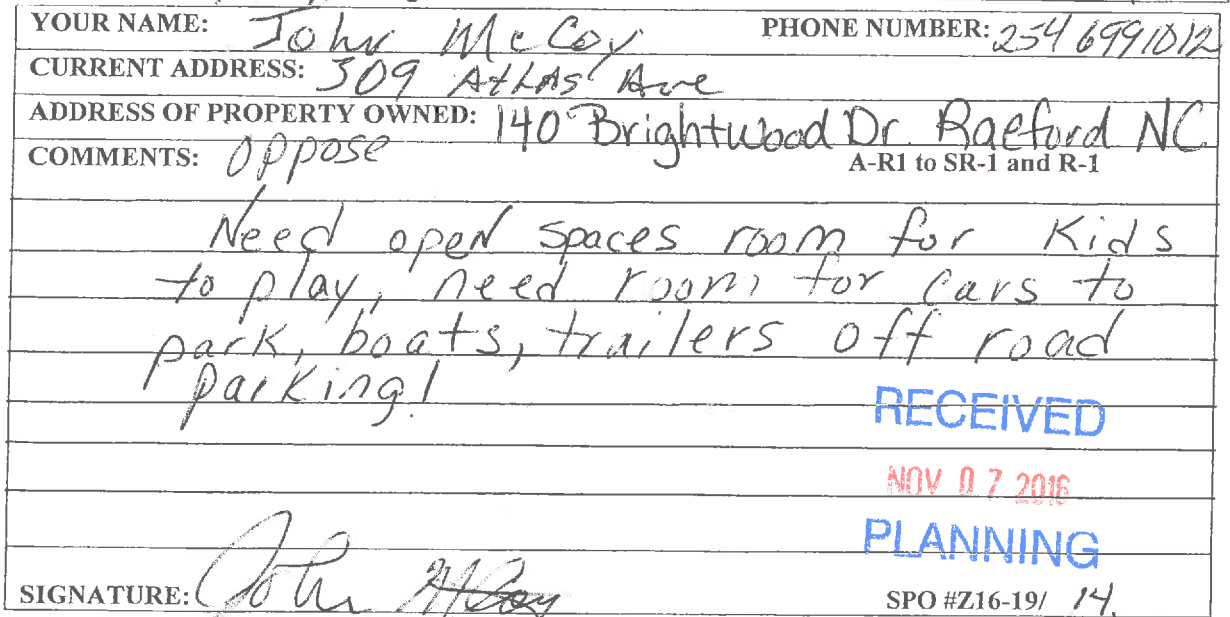 YOUR NAME: John McCoy PHONE NUMBER: 254 6991012
CURRENT ADDRESS: 309 Atlas Ave
ADDRESS OF PROPERTY OWNED: 140 Brightwood Dr. Raeford NC
COMMENTS: Oppose A-R1 to SR-1 and R-1
Need open spaces room for Kids
to play, need room for cars to
park, boats, trailers off road
parking!
RECEIVED
NOV 07 2016
PLANNING
SIGNATURE: John McCoy SPO #Z16-19/ 14.